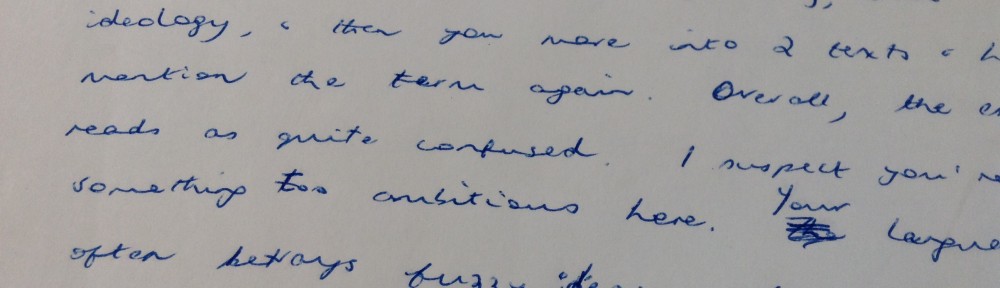 ideology, & then you move into 2 texts &
mention the term again. Overall, the
reads as quite confused. I suspect you're
something too ambitious here. Your
often betrays fuzzy